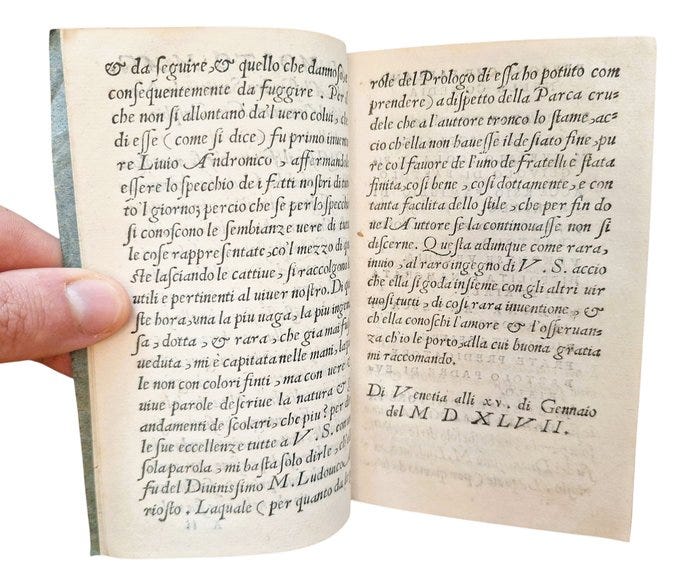 & da ſeguire, & quello che dannoſo,
conſequentemente da fuggire. Per
che non ſi allontanò da'l uero colui,
di eſſe (come ſi dice) fu primo
re Liuio Andronico, affermando
eſſere lo ſpecchio de i fatti noſtri di
to'l giorno; percio che ſe per lo ſpecchio
ſi conoſcono le ſembianze uere di
le coſe rappreſentate, co'l mezzo di
ſte laſciando le cattiue, ſi raccolgono
utili e pertinenti al uiuer noſtro. Di
ſte hora, una la piu uaga, la piu
ſa, dotta, & rara, che gia mai
ueduta, mi è capitata nelle mani,
le non con colori finti, ma con uere &
uiue parole deſcriue la natura &
andamenti de ſcolari, che piu?
le ſue eccellenze tutte a V. S.
ſola parola, mi baſta ſolo dirle,
fu del Diuiniſſimo M. Ludouico
rioſto. Laquale (per quanto da
role del Prologo di eſſa ho potuto com
prendere) a diſpetto della Parca cru=
dele che a l'auttore tronco lo ſtame, ac=
cio ch'ella non haueſſe il deſiato fine, pu=
re co'l fauore de l'uno de fratelli è ſtata
finita, coſi bene, coſi dottamente, e con
tanta facilita dello ſtile, che per fin do
ue l'Auttore ſe la continouaſſe non ſi
diſcerne. Queſta adunque come rara,
inuio, al raro ingegno di V. S. accio
che ella ſi goda inſieme con gli altri uir
tuoſi tutti, di coſi rara inuentione, &
ch ella conoſchi l'amore & l'oſſeruan=
za ch'io le porto, alla cui buona gratia
mi raccomando.
Di Venetia alli xv. di Gennaio
del M D XLVII.